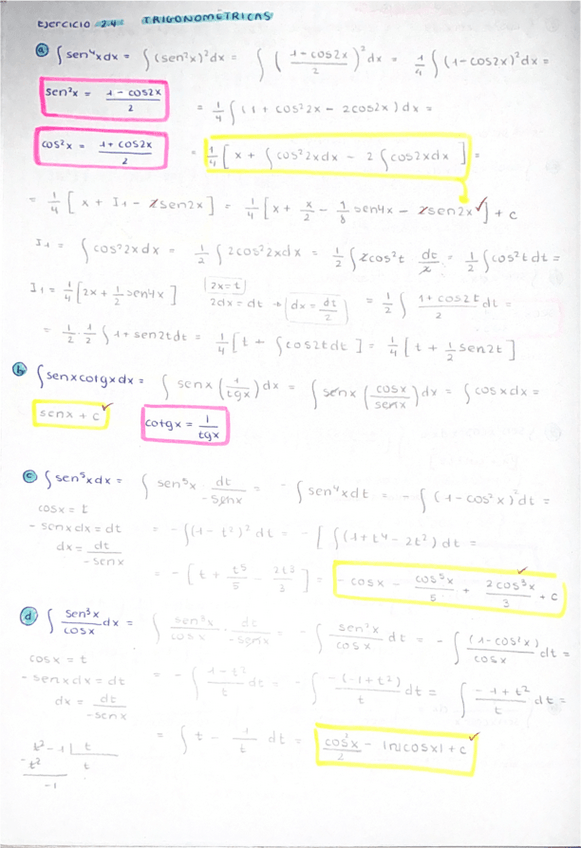 Ejercicio 2.4 TRIGONOMÉTRICAS
a) ∫ sen⁴x dx = ∫ (sen²x)² dx = ∫ ( (1 - cos2x) / 2 )² dx = 1/4 ∫ (1 - cos2x)² dx =
sen²x = (1 - cos2x) / 2
= 1/4 ∫ (1 + cos²2x - 2cos2x) dx =
cos²x = (1 + cos2x) / 2
= 1/4 [ x + ∫ cos²2x dx - 2 ∫ cos2x dx ] =
= 1/4 [ x + I₁ - 2sen2x ] = 1/4 [ x + x/2 - 1/8 sen4x - 2sen2x ] + c
I₁ = ∫ cos²2x dx = 1/2 ∫ 2cos²2x dx = 1/2 ∫ 2cos²t dt/2 = 1/2 ∫ cos²t dt =
I₁ = 1/4 [ 2x + 1/2 sen4x ]
2x = t
2dx = dt → dx = dt/2
= 1/2 ∫ (1 + cos2t) / 2 dt =
= 1/2 · 1/2 ∫ 1 + sen2t dt = 1/4 [ t + ∫ cos2t dt ] = 1/4 [ t + 1/2 sen2t ]
b) ∫ senx cotgx dx = ∫ senx ( 1/tgx ) dx = ∫ senx ( cosx/senx ) dx = ∫ cosx dx =
senx + c
cotgx = 1/tgx
c) ∫ sen⁵x dx = ∫ sen⁵x · dt/-senx = - ∫ sen⁴x dt = - ∫ (1 - cos²x)² dt =
cosx = t
- senx dx = dt
dx = dt/-senx
= - ∫ (1 - t²)² dt = - [ ∫ (1 + t⁴ - 2t²) dt =
= - [ t + t⁵/5 - 2t³/3 ] = - cosx - cos⁵x/5 + 2cos³x/3 + c
d) ∫ sen³x/cosx dx = ∫ sen³x/cosx · dt/-senx = - ∫ sen²x/cosx dt = - ∫ (1 - cos²x)/cosx dt =
cosx = t
- senx dx = dt
dx = dt/-senx
= - ∫ (1 - t²)/t dt = - ∫ -(-1 + t²)/t dt = ∫ (-1 + t²)/t dt =
= ∫ t - 1/t dt = cos²x/2 - ln|cosx| + c
t² - 1 | t
- t² t
-1